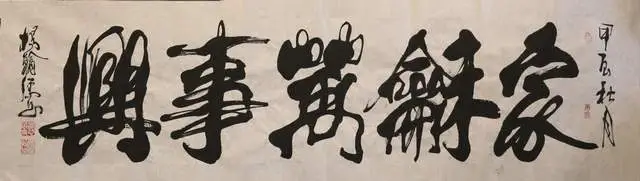 甲辰秋月
家龢萬事興